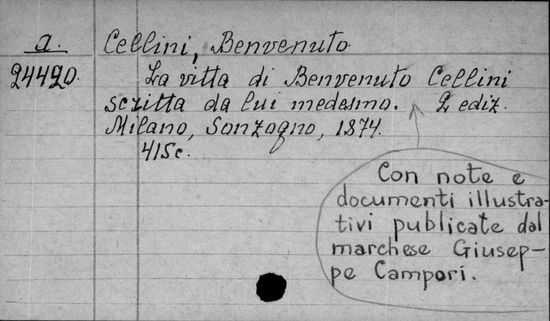 a. Cellini, Benvenuto
24420. La vitta di Benvenuto Cellini
scritta da lui medesmo. 2 ediz.
Milano, Sonzogno, 1874.
415c.
Con note e
documenti illustra-
tivi publicate dal
marchese Giusep-
pe Campori.